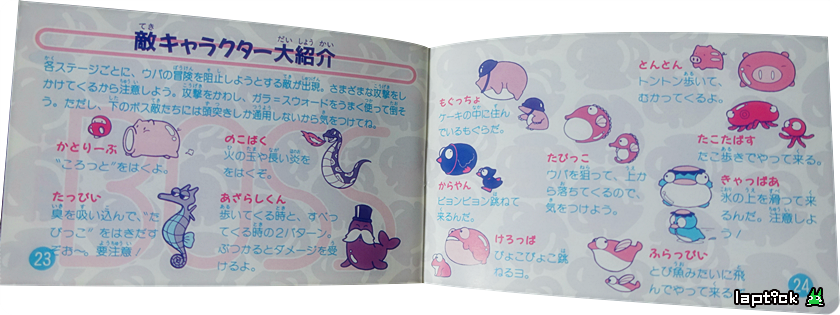 敵キャラクター大紹介
各ステージごとに、ウパの冒険を阻止しようとする敵が出現。さまざまな攻撃をし
かけてくるから注意しよう。攻撃をかわし、ガラ=スウォードをうまく使って倒そ
う。ただし、下のボス敵たちには頭突きしか通用しないから気をつけてね。
BOSS
かとりーぶ
"ころっと"をはくよ。
のこばく
火の玉や長い炎を
はくぞ。
たっぴい
奥を吸い込んで、"た
ぴっこ"をはきだす
ぞお〜。要注意！
あざらしくん
歩いてくる時と、すべっ
てくる時の2パターン。
ぶつかるとダメージを受
けるよ。
23
もぐっちょ
ケーキの中に住ん
でいるもぐらだ。
からやん
ピョンピョン跳ねて
来るんだ。
けろっぱ
ぴょこぴょこ跳
ねるヨ。
たぴっこ
ウパを狙って、上か
ら落ちてくるので、
気をつけよう。
とんとん
トントン歩いて、
むかってくるよ。
たこたばす
たこ歩きでやって来る。
きゃっぱあ
氷の上を滑って来
るんだ。注意しよ
う！
ふらっぴい
とび魚みたいに飛
んでやって来る
24
laptick